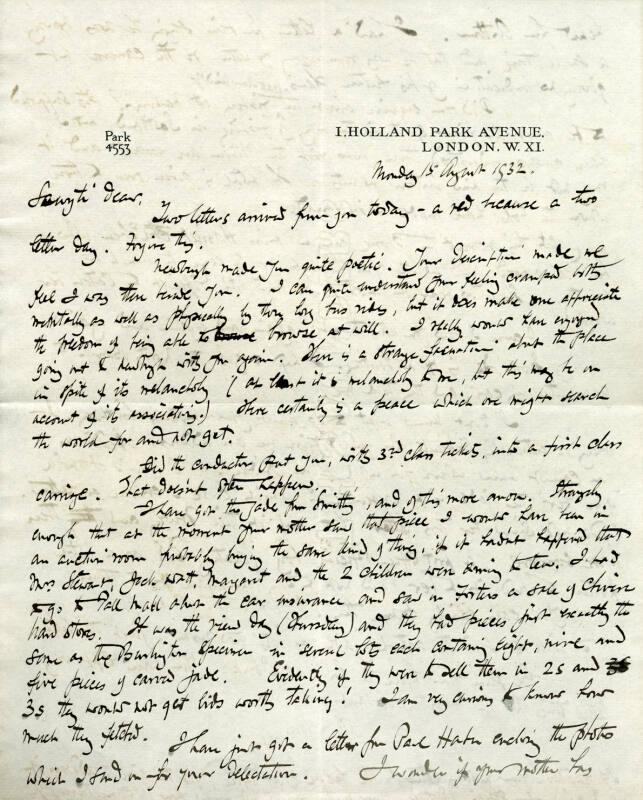 Park
4553
1. HOLLAND PARK AVENUE,
LONDON, W. XI.
Monday 15 August 1932.
dear,
Two letters arrived from you today – a red because a two
letter day. Forgive this.
Newburgh made you quite poetic. Your description made me
feel I was there beside you. I can quite understand your feeling cramped both
mentally as well as physically by those long bus rides, but it does make one appreciate
the freedom of being able to browse at will. I really would have enjoyed
going out to Newburgh with you again. There is a strange fascination about the place
in spite of its melancholy (at least it is melancholy to me, but this may be on
account of its associations.) There certainly is a peace which one might search
the world for and not get.
Did the conductor put you, with 3rd class tickets, into a first class
carriage. That doesn't often happen.
I have got the jade from Smith's, and of this more anon. Strangely
enough that at the moment your mother saw that piece I would have been in
an auction room probably buying the same kind of thing, if it hadn't happened that
Mrs Stewart Jack Watt, Margaret and the 2 children were coming to tea. I had
to go to Pall Mall about the car insurance and saw in Fosters a sale of Chinese
hard stones. It was the view day (Thursday) and they had pieces just exactly the
same as the Burlington specimen in several lots each containing eight, nine and
five pieces of carved jade. Evidently if they were to sell them in 2s and
3s they would not get bids worth taking! I am very curious to know how
much they fetched.
I have just got a letter from Paul enclosing the photo
which I send on for your delectation. I wonder if your mother has